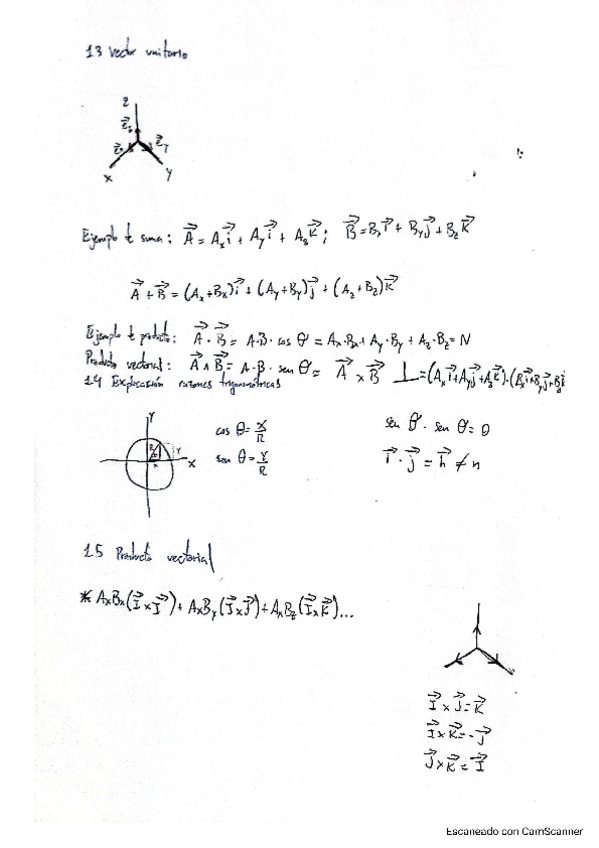 1.3 Vector unitario
Z
X
Y
Ejemplo de suma: A⃗ = Aₓi⃗ + Aᵧi⃗ + A_zK⃗; B⃗ = Bₓi⃗ + Bᵧj⃗ + B_zK⃗
A⃗ + B⃗ = (Aₓ+Bₓ)i⃗ + (Aᵧ+Bᵧ)j⃗ + (A_z+B_z)K⃗
Ejemplo de producto: A⃗ · B⃗ = A·B · cos θ = Aₓ·Bₓ + Aᵧ·Bᵧ + A_z·B_z = N
Producto vectorial: A⃗ ∧ B⃗ = A·B · sen θ = A⃗ × B⃗ ⊥ = (Aₓi⃗+Aᵧj⃗+A_zK⃗)·(Bₓi⃗+Bᵧj⃗+B_zK⃗
1.4 Explicación razones trigonométricas
Y
X
R
Y
x
cos θ = x/R
sen θ = Y/R
sen θ · sen θ = 0
i⃗ · j⃗ = h⃗ ≠ n
1.5 Producto vectorial
* AₓBₓ(I⃗ × I⃗) + AₓBᵧ(I⃗ × J⃗) + AₓB_z(I⃗ × K⃗)...
I⃗ × J⃗ = K⃗
I⃗ × K⃗ = -J⃗
J⃗ × K⃗ = I⃗
Escaneado con CamScanner